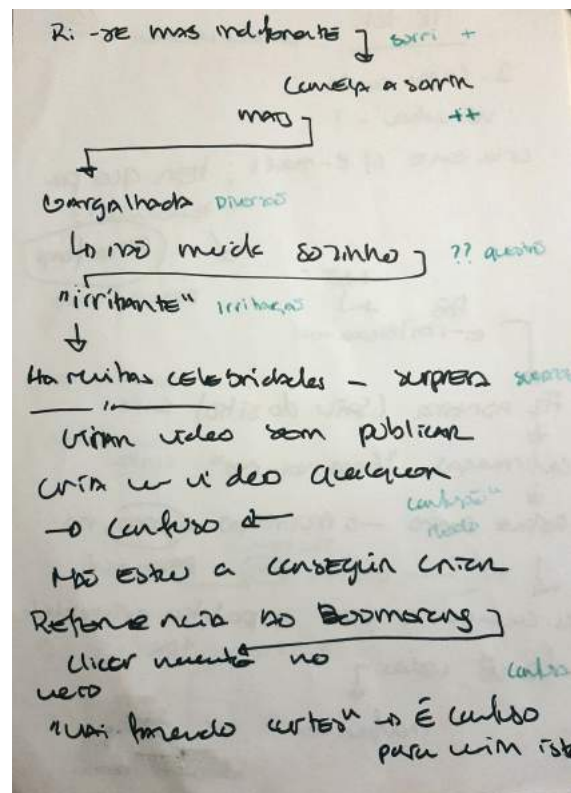 Ri-se mas indiferente sorri +
Começa a sorrir
mais ++
Gargalhada Diversão
↳ não muda sozinho ?? questão
"irritante" irritação
Há muitas celebridades – surpresa
criar video sem publicar
cria um video qualquer
→ confuso confusão
Não estou a conseguir criar
Referencia ao Boomerang
clicar no
"vai fazendo cortes" → É confuso
para mim isto